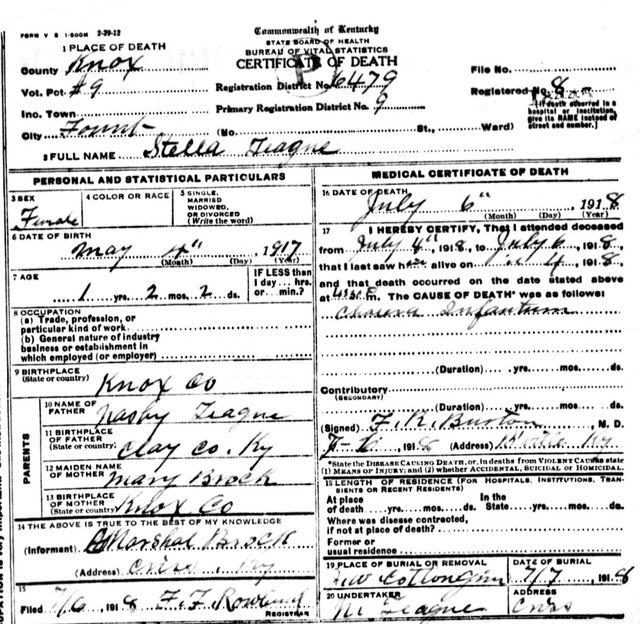 FORM V S 1-500M 2-29-12
Commonwealth of Kentucky
STATE BOARD OF HEALTH
BUREAU OF VITAL STATISTICS
CERTIFICATE OF DEATH
1 PLACE OF DEATH
County Knox
Vot. Pct. #9
Inc. Town
City Fount
Registration District No. 6479
Primary Registration District No. 9
(No. St., Ward)
File No.
Registered No. 8
[If death occurred in a hospital or institution, give its NAME instead of street and number.]
2 FULL NAME Stella Teague
PERSONAL AND STATISTICAL PARTICULARS
3 SEX Female
4 COLOR OR RACE
5 SINGLE, MARRIED WIDOWED, OR DIVORCED (Write the word)
6 DATE OF BIRTH
May 4" 1917
(Month) (Day) (Year)
7 AGE
1 yrs. 2 mos. 2 ds.
IF LESS than 1 day... hrs. or min.?
8 OCCUPATION
(a) Trade, profession, or particular kind of work
(b) General nature of industry
business or establishment in
which employed (or employer)
9 BIRTHPLACE
(State or country) Knox Co
PARENTS
10 NAME OF FATHER Teague
11 BIRTHPLACE OF FATHER (State or country) Clay Co. Ky
12 MAIDEN NAME OF MOTHER Mary Brock
13 BIRTHPLACE OF MOTHER (State or country) Knox Co
14 THE ABOVE IS TRUE TO THE BEST OF MY KNOWLEDGE
(Informant) Marshal Brock
(Address) Ky
15
Filed 7/6, 1918 F. F. REGISTRAR
MEDICAL CERTIFICATE OF DEATH
16 DATE OF DEATH
July 6" 1918
(Month) (Day) (Year)
17 I HEREBY CERTIFY, That I attended deceased
from July 4" 1918, to July 6, 1918,
that I last saw h alive on 4, 1918,
and that death occurred on the date stated above
at m. The CAUSE OF DEATH* was as follows:
Infantum
(Duration) yrs. mos. ds.
Contributory
(SECONDARY)
(Duration) yrs. mos. ds.
(Signed) F. R. Burton, M. D.
1918 (Address) Ky
*State the DISEASE CAUSING DEATH, or, in deaths from VIOLENT CAUSES state (1) MEANS OF INJURY; and (2) whether ACCIDENTAL, SUICIDAL or HOMICIDAL.
18 LENGTH OF RESIDENCE (FOR HOSPITALS, INSTITUTIONS, TRANSIENTS OR RECENT RESIDENTS)
At place of death yrs. mos. ds. In the State yrs. mos. ds.
Where was disease contracted,
if not at place of death?
Former or
usual residence
19 PLACE OF BURIAL OR REMOVAL
DATE OF BURIAL
7/7, 1918
20 UNDERTAKER
Teague
ADDRESS